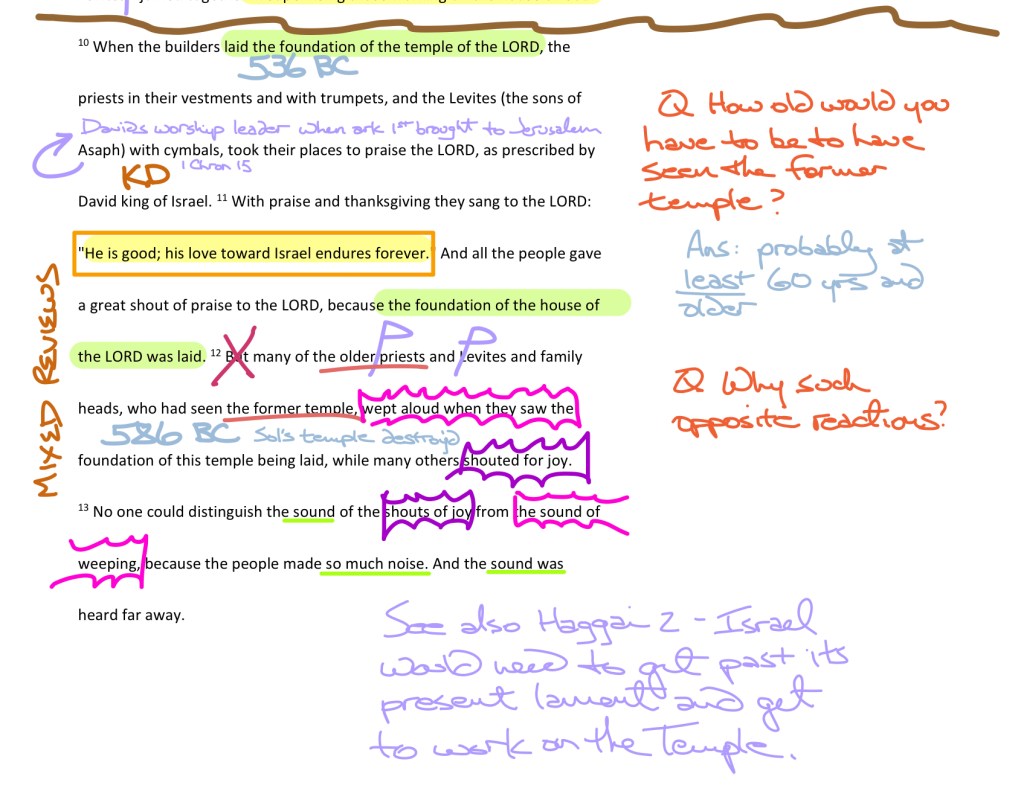 10 When the builders laid the foundation of the temple of the LORD, the
536 BC
priests in their vestments and with trumpets, and the Levites (the sons of
Davids worship leader when ark 1st brought to Jerusalem
Asaph) with cymbals, took their places to praise the LORD, as prescribed by
KD 1 Chron 15
David king of Israel. 11 With praise and thanksgiving they sang to the LORD:
"He is good; his love toward Israel endures forever." And all the people gave
a great shout of praise to the LORD, because the foundation of the house of
P P
the LORD was laid. 12 But many of the older priests and Levites and family
heads, who had seen the former temple, wept aloud when they saw the
586 BC Sol's temple destroyd
foundation of this temple being laid, while many others shouted for joy.
13 No one could distinguish the sound of the shouts of joy from the sound of
weeping, because the people made so much noise. And the sound was
heard far away.
MIXED REVIEWS
Q How old would you
have to be to have
seen the former
temple?
Ans: probably at
least 60 yrs and
older
Q Why such
opposite reactions?
See also Haggai 2 - Israel
would need to get past its
present lament and get
to work on the Temple.